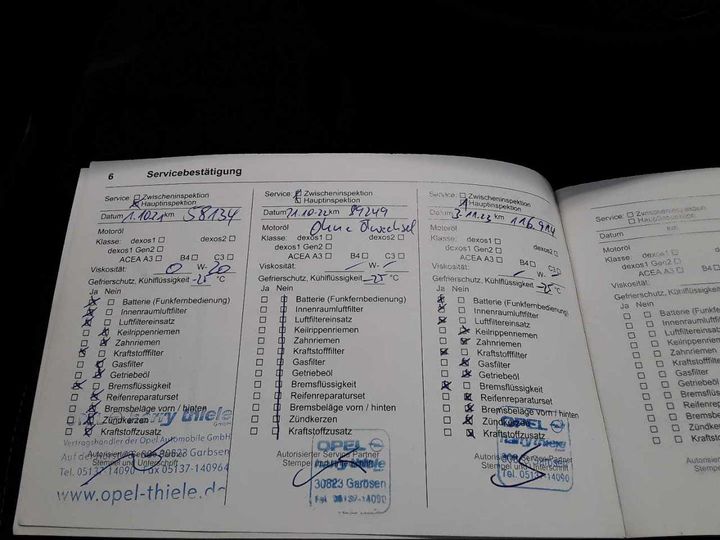 6 Servicebestätigung
Service: Zwischeninspektion
Hauptinspektion
Datum 1.10.21 km 58134
Motoröl
Klasse: dexos1 dexos2
dexos1 Gen2
ACEA A3 B4 C3
Viskosität: 0 W- 20
Gefrierschutz, Kühlflüssigkeit -25 °C
Ja Nein
Batterie (Funkfernbedienung)
Innenraumluftfilter
Luftfiltereinsatz
Keilrippenriemen
Zahnriemen
Kraftstofffilter
Gasfilter
Getriebeöl
Bremsflüssigkeit
Reifenreparaturset
Bremsbeläge vorn / hinten
Zündkerzen
Kraftstoffzusatz
harry thiele
Vertragshändler der Opel Automobile GmbH
Auf de 30823 Garbsen
Autorisierter Service
Stempel und Unterschrift
Tel. 05137-14090 Fax 05137-140964
www.opel-thiele.de
Service: Zwischeninspektion
Hauptinspektion
Datum 21.10.22 km 89249
Motoröl Ohne Ölwechsel
Klasse: dexos1 dexos2
dexos1 Gen2
ACEA A3 B4 C3
Viskosität: W-
Gefrierschutz, Kühlflüssigkeit -25 °C
Ja Nein
Batterie (Funkfernbedienung)
Innenraumluftfilter
Luftfiltereinsatz
Keilrippenriemen
Zahnriemen
Kraftstofffilter
Gasfilter
Getriebeöl
Bremsflüssigkeit
Reifenreparaturset
Bremsbeläge vorn / hinten
Zündkerzen
Kraftstoffzusatz
OPEL
Autorisierter Service Partner
Stempel
harry thiele
30823 Garbsen
Tel. 05137-14090
Service: Zwischeninspektion
Hauptinspektion
Datum 3.11.23 km 116.914
Motoröl
Klasse: dexos1 dexos2
dexos1 Gen2
ACEA A3 B4 C3
Viskosität: W-
Gefrierschutz, Kühlflüssigkeit -25 °C
Ja Nein
Batterie (Funkfernbedienung)
Innenraumluftfilter
Luftfiltereinsatz
Keilrippenriemen
Zahnriemen
Kraftstofffilter
Gasfilter
Getriebeöl
Bremsflüssigkeit
Reifenreparaturset
Bremsbeläge vorn / hinten
Zündkerzen
Kraftstoffzusatz
OPEL
harry thiele
Autorisierter Service Partner
Stempel und Unterschrift
Tel. 05137-14090
Service: Zwischeninspektion
Hauptinspektion
Datum km
Motoröl
Klasse: dexos1
dexos1 Gen2
ACEA A3
Viskosität:
Gefrierschutz, Kühlflüssigkeit
Ja Nein
Batterie
Innenraumluftfilter
Luftfiltereinsatz
Keilrippenriemen
Zahnriemen
Kraftstofffilter
Gasfilter
Getriebeöl
Bremsflüssigkeit
Reifenreparaturset
Bremsbeläge
Zündkerzen
Kraftstoffzusatz
Autorisierter
Stempel